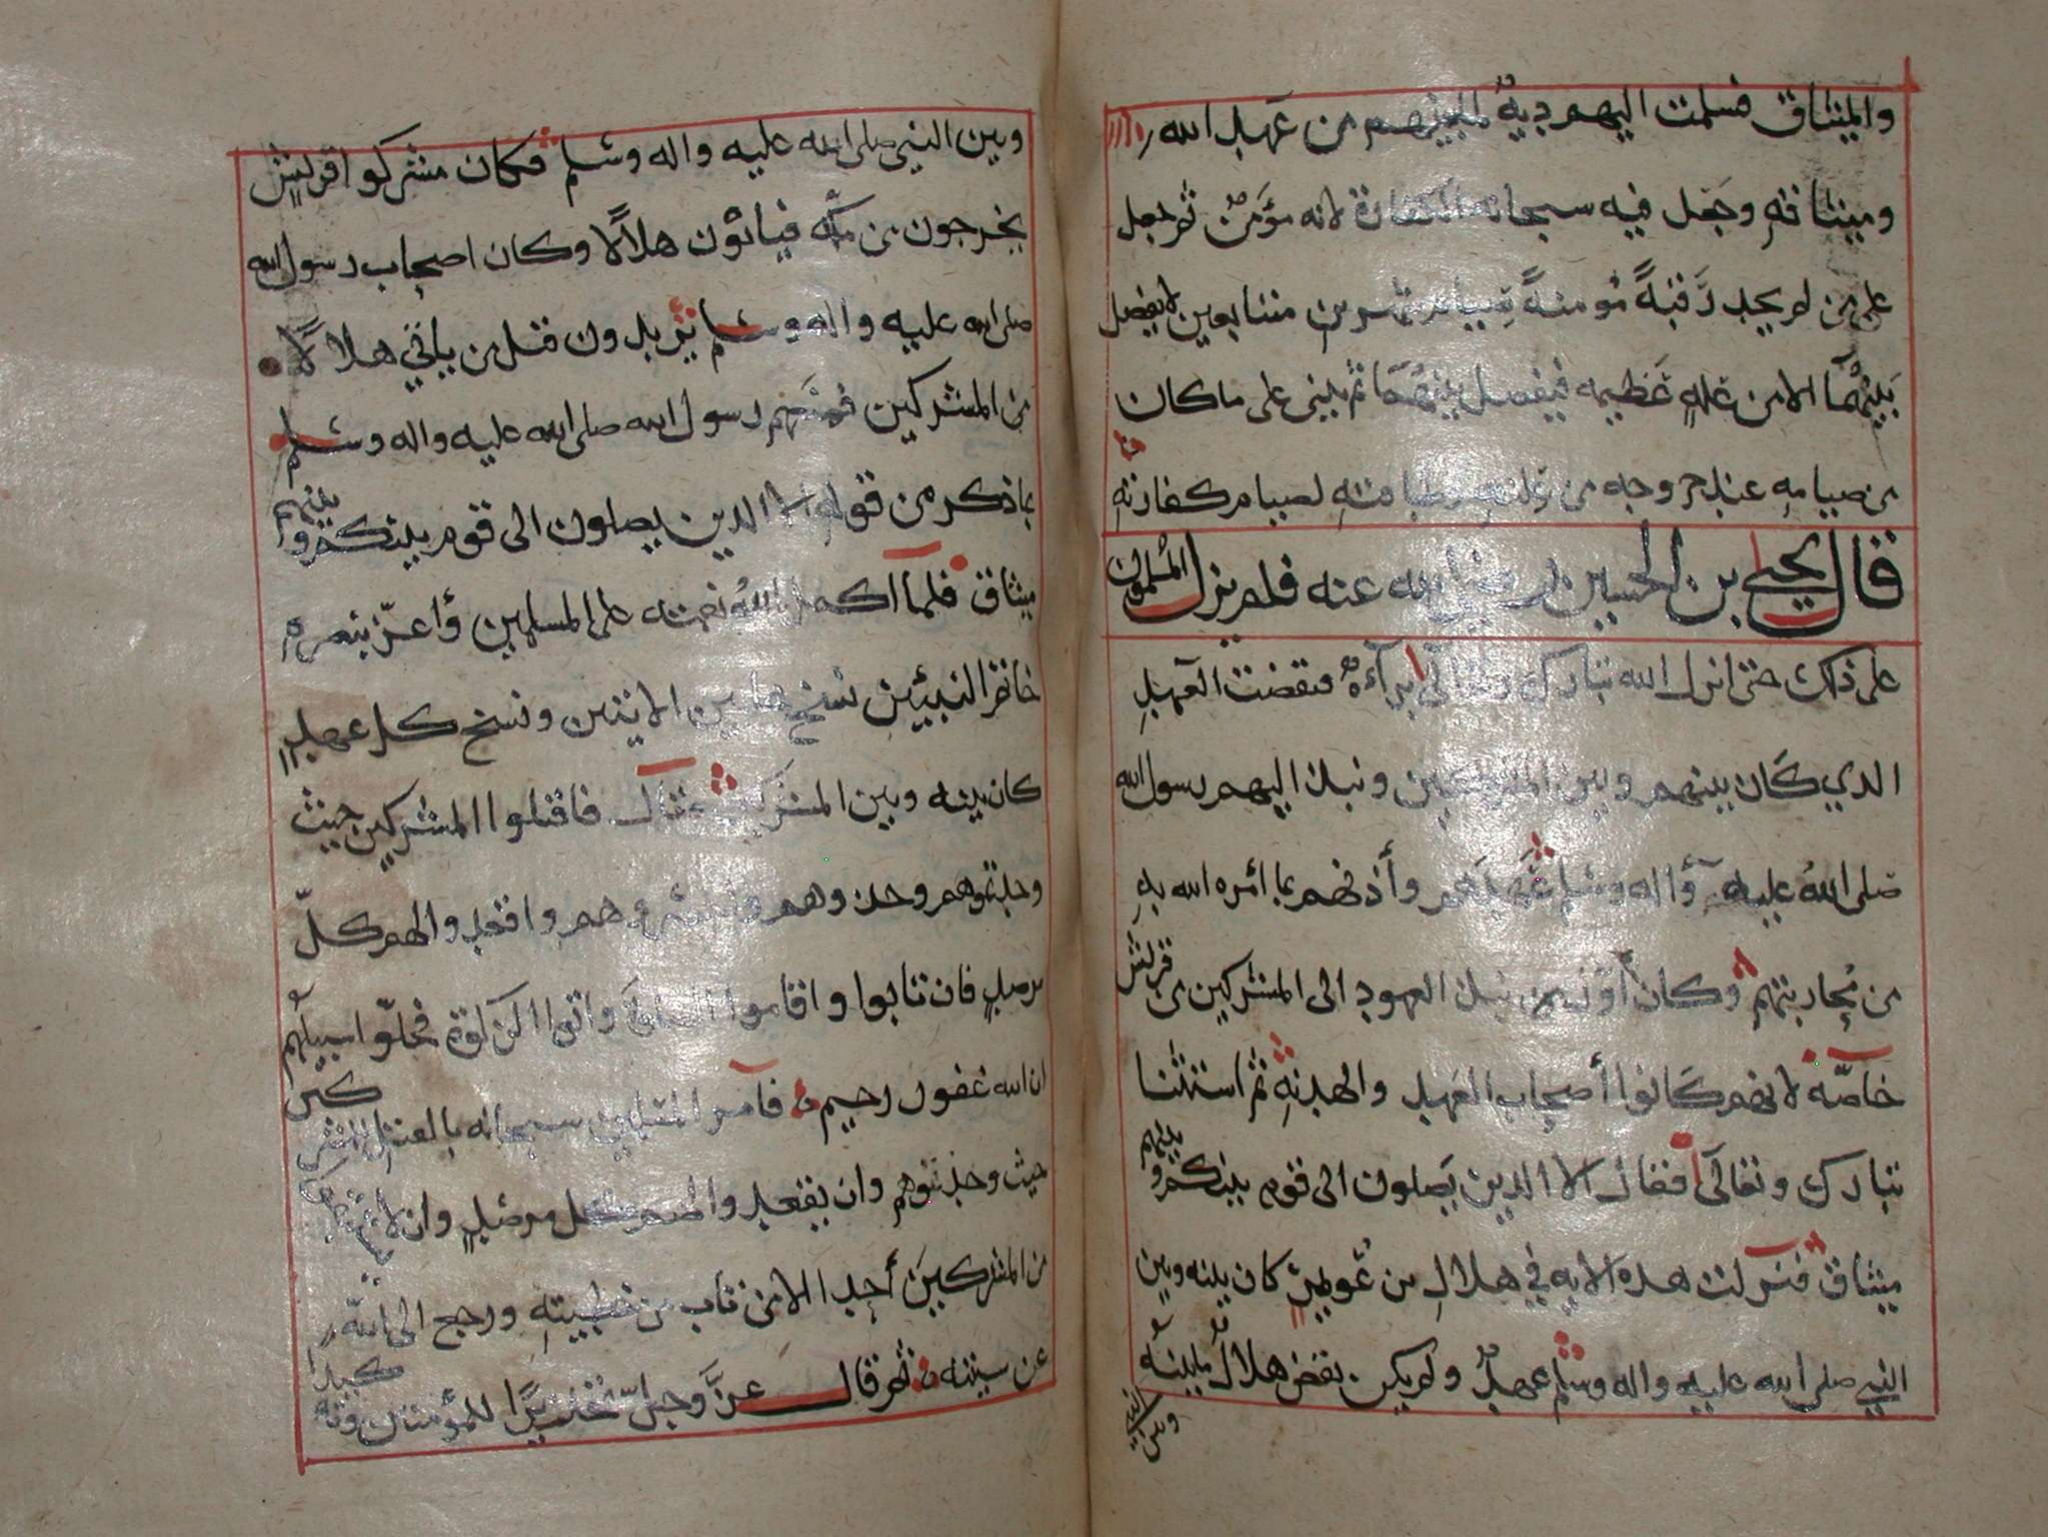 والميثاق فسلمت اليهم دية لمجيرهم من عهد الله
وميثاقه وجعل فيه سبحانه الكفارة لانه مؤمن ثم جعل
على من لم يجد رقبة مومنة صيام شهرين متتابعين لا يفصل
بينهما الا من علة عظيمه فيفصل بينهما ثم يبني على ما كان
من صيامه عند خروجه من علته واطاقته لصيام كفارته
قال يحيى بن الحسين رضي الله عنه فلم يزل المسلمون
على ذلك حتى انزل الله تبارك وتعالى براءة فنقضت العهد
الذي كان بينهم وبين المشركين ونبذ اليهم رسول الله
صلى الله عليه وآله وسلم عهدهم وأذنهم بما امره الله به
من محاربتهم وكان اول من نبذ العهود الى المشركين من قريش
خاصه لانهم كانوا أصحاب العهد والهدنة ثم استثنا
تبارك وتعالى فقال الا الذين يصلون الى قوم بينكم وبينهم
ميثاق فنزلت هذه الايه في هلال بن عويمر كان بينه وبين
النبي صلى الله عليه واله وسلم عهد ولم يكن نقض هلال ما بينه
وبين النبي
وبين النبي صلى الله عليه واله وسلم فكان مشركوا قريش
يخرجون من مكه فياتون هلالا وكان اصحاب رسول الله
صلى الله عليه واله وسلم يريدون قتل من ياتي هلالا
من المشركين فمنعهم رسول الله صلى الله عليه واله وسلم
بما ذكر من قوله الا الذين يصلون الى قوم بينكم وبينهم
ميثاق فلما اكمل الله نعمته على المسلمين وأعز بنصره
خاتم النبيين نسخ هاتين الايتين ونسخ كل عهد
كان بينه وبين المشركين فقال فاقتلوا المشركين حيث
وجدتموهم وخذوهم واحصروهم واقعدوا لهم كل
مرصد فان تابوا واقاموا الصلوة واتوا الزكوة فخلوا سبيلهم
ان الله غفور رحيم فأمر المسلمين سبحانه بالقتل للمشركين
حيث وجدتموهم وان يقعدوا لهم كل مرصد وان لا
من المشركين أحدا الا من تاب من خطيته ورجع الى الله
عن سيئته ثم قال عز وجل للمؤمنين